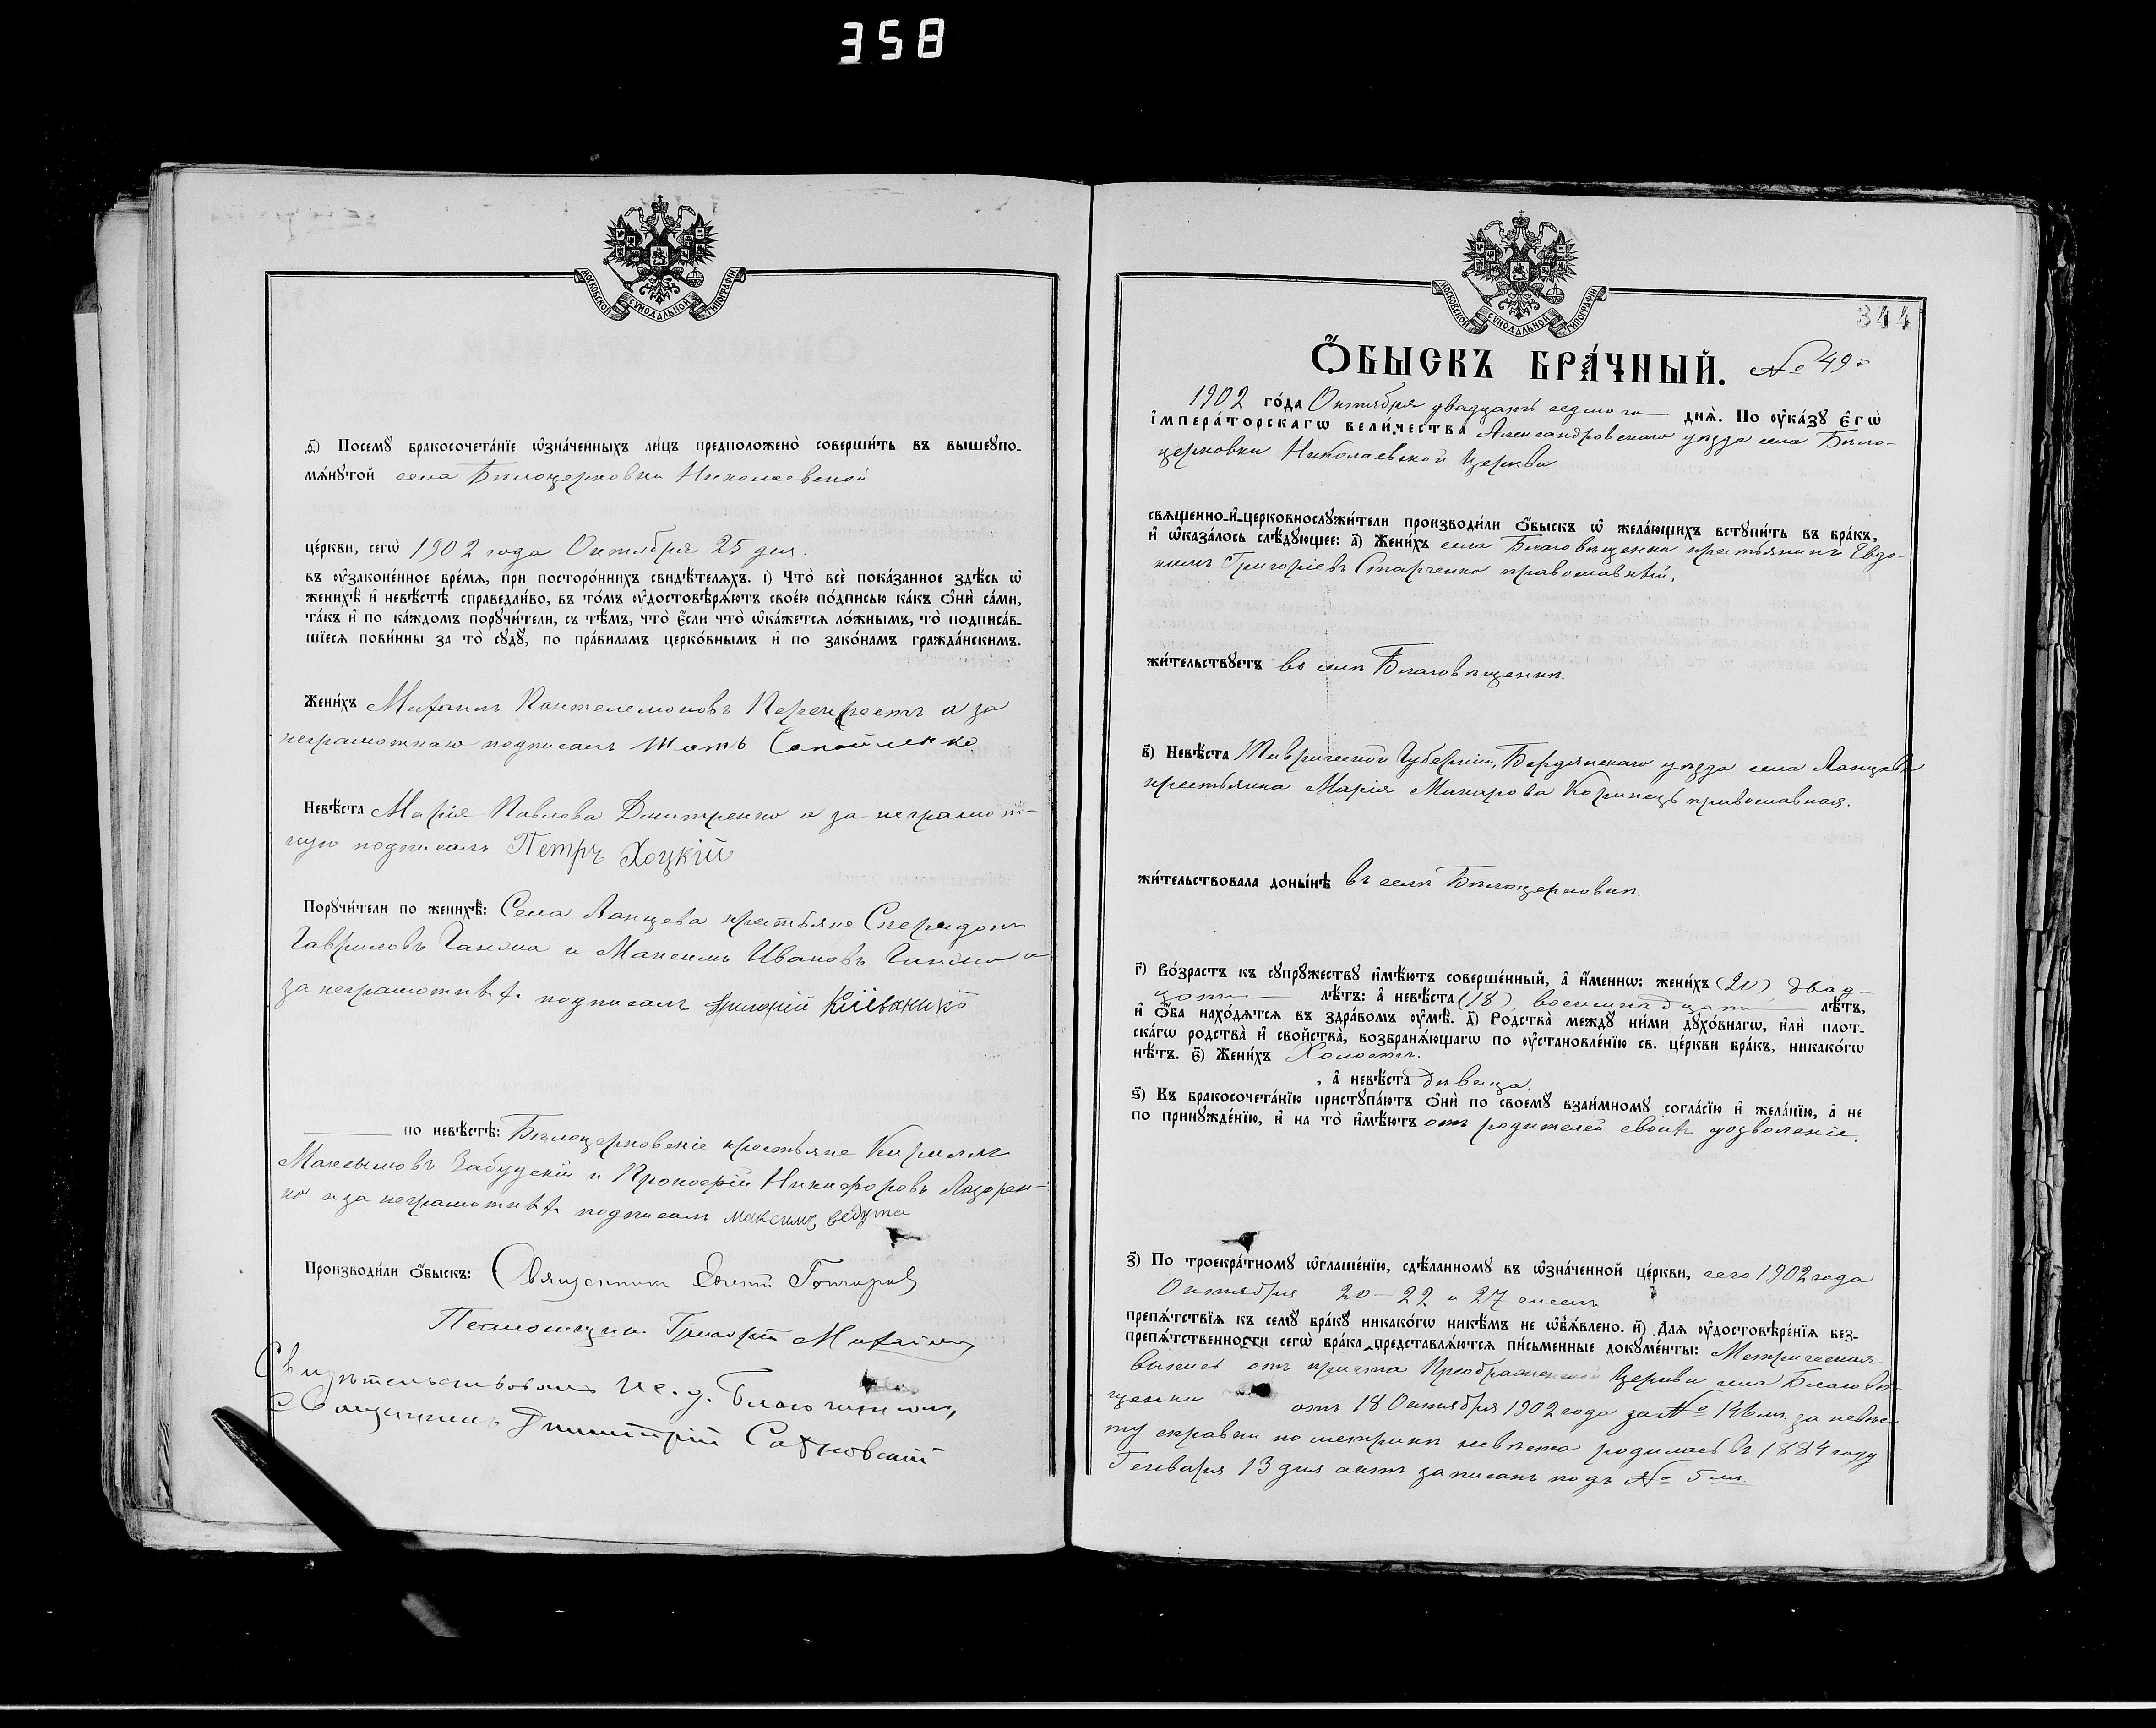 358
МОСКОВСКОЙ СѴНОДАЛЬНОЙ ТИПОГРАФІИ
д҃і) Посемꙋ бракосочета́нїе ѡ҆зна́ченныхъ ли́цъ предположено̀ соверши́ть въ вышеꙋпо-
мѧ́нꙋтой села Бѣлоцерковки Николаевской
це́ркви, сегѡ̀ 1902 года Октября 25 дня.
въ ᲂу҆зако́не́нное вре́мѧ, при посторо́ннихъ свидѣ́телѧхъ. і҃) Что̀ всѐ пока́занное здѣ́сь ѡ҆
женихѣ̀ и҆ невѣ́стѣ справедли́во, въ то́мъ ᲂу҆достовѣрѧ́ютъ свое́ю по́дписью ка́къ ѻ҆нѝ са́ми,
та́къ и҆ по ка́ждомъ порꙋчи́тели, съ тѣ́мъ, что̀ є҆́сли что̀ ѡ҆ка́жетсѧ ло́жнымъ, то̀ подписа́в-
шїесѧ пови́нны за то̀ сꙋдꙋ̀, по пра́виламъ церко́внымъ и҆ по зако́намъ гражда́нскимъ.
Жени́хъ Михаилъ Пантелемоновъ Перекрестъ а за
неграмотнаго подписалъ
Невѣ́ста Марія Павлова Дмитренко а за неграмот-
ную подписалъ Петръ Хоцкій
Порꙋчи́тели по женихѣ̀: Села Ланцева крестьяне Спередонъ
Гавриловъ и Максимъ Ивановъ а
за неграмотныхъ подписалъ Григорій
по невѣ́стѣ: Бѣлоцерковскіе крестьяне Кириллъ
Максимовъ и Прокофій Никифоровъ Лазорен-
ко а за неграмотныхъ подписалъ Максимъ ведута
Производи́ли ѻ҆́быскъ: Священникъ Гончаровъ
Псаломщикъ Григорій
Свидѣтельствовалъ Ис. д. Благочиннаго,
Священникъ Димитрій
МОСКОВСКОЙ СѴНОДАЛЬНОЙ ТИПОГРАФІИ
344
Ѻ҆́БЫСКЪ БРА́ЧНЫЙ. № 49й
1902 го́да Октября двадцать седьмого днѧ̀. По ᲂу҆ка́зꙋ є҆гѡ̀
і҆мпера́торскагѡ вели́чества Александровскаго уѣзда села Бѣло-
церковки Николаевской Церкви
свѧщенно-и҆-церковнослꙋжи́тели производи́ли ѻ҆́быскъ ѡ҆ жела́ющихъ встꙋпи́ть въ бра́къ,
и҆ ѡ҆каза́лось слѣ́дꙋющее: а҃) Жени́хъ села Благовѣщенки крестьянинъ Евдо-
кимъ Григоріевъ Старченко православный,
жи́тельствꙋетъ въ селѣ Благовѣщенкѣ.
в҃) Невѣ́ста Таврической Губерніи, Бердянскаго уѣзда села Ланцева
крестьянка Марія Макарова Коринецъ православная.
жи́тельствовала доны́нѣ въ селѣ Бѣлоцерковкѣ.
г҃) Во́зрастъ къ сꙋпрꙋ́жествꙋ и҆мѣ́ютъ соверше́нный, а҆ и҆́меннѡ: жени́хъ (20) двад-
цати лѣ́тъ: а҆ невѣ́ста (18) восемнадцати лѣ́тъ,
и҆ ѻ҆́ба нахо́дѧтсѧ въ здра́вомъ ᲂу҆мѣ̀. д҃) Родства̀ междꙋ̀ ни́ми дꙋхо́внагѡ, и҆лѝ плот-
ска́гѡ родства̀ и҆ сво́йства̀, возбранѧ́ющагѡ по ᲂу҆становле́нїю св. це́ркви бра́къ, никако́гѡ
нѣ́тъ. є҃) Жени́хъ Холостъ.
, а҆ невѣ́ста дѣвица.
ѕ҃) Къ бракосочета́нїю пристꙋпа́ютъ ѻ҆нѝ по своемꙋ̀ взаи́мномꙋ согла́сїю и҆ жела́нїю, а҆ не
по принꙋжде́нїю, и҆ на то̀ и҆мѣ́ютъ отъ родителей своихъ дозволеніе.
з҃) По троекра́тномꙋ ѡ҆глаше́нїю, сдѣ́ланномꙋ въ ѡ҆зна́ченной це́ркви, сего 1902 года
Октября 20 – 22 и 27 чиселъ
препѧ́тствїѧ къ семꙋ̀ бра́кꙋ никако́гѡ никѣ́мъ не ѡ҆б̾ѧ́влено. и҃) Длѧ ᲂу҆достовѣре́нїѧ без-
препѧ́тственности сегѡ̀ бра́ка представлѧ́ютсѧ пи́сьменные докꙋме́нты: Метрическая
выпись отъ причта Преображенской Церкви села Благовѣ-
щенки отъ 18 Октября 1902 года за № 146м. за невѣс-
ту справки по метрикѣ невѣста родилась въ 1884 году
Генваря 13 дня актъ записанъ подъ № 5м.